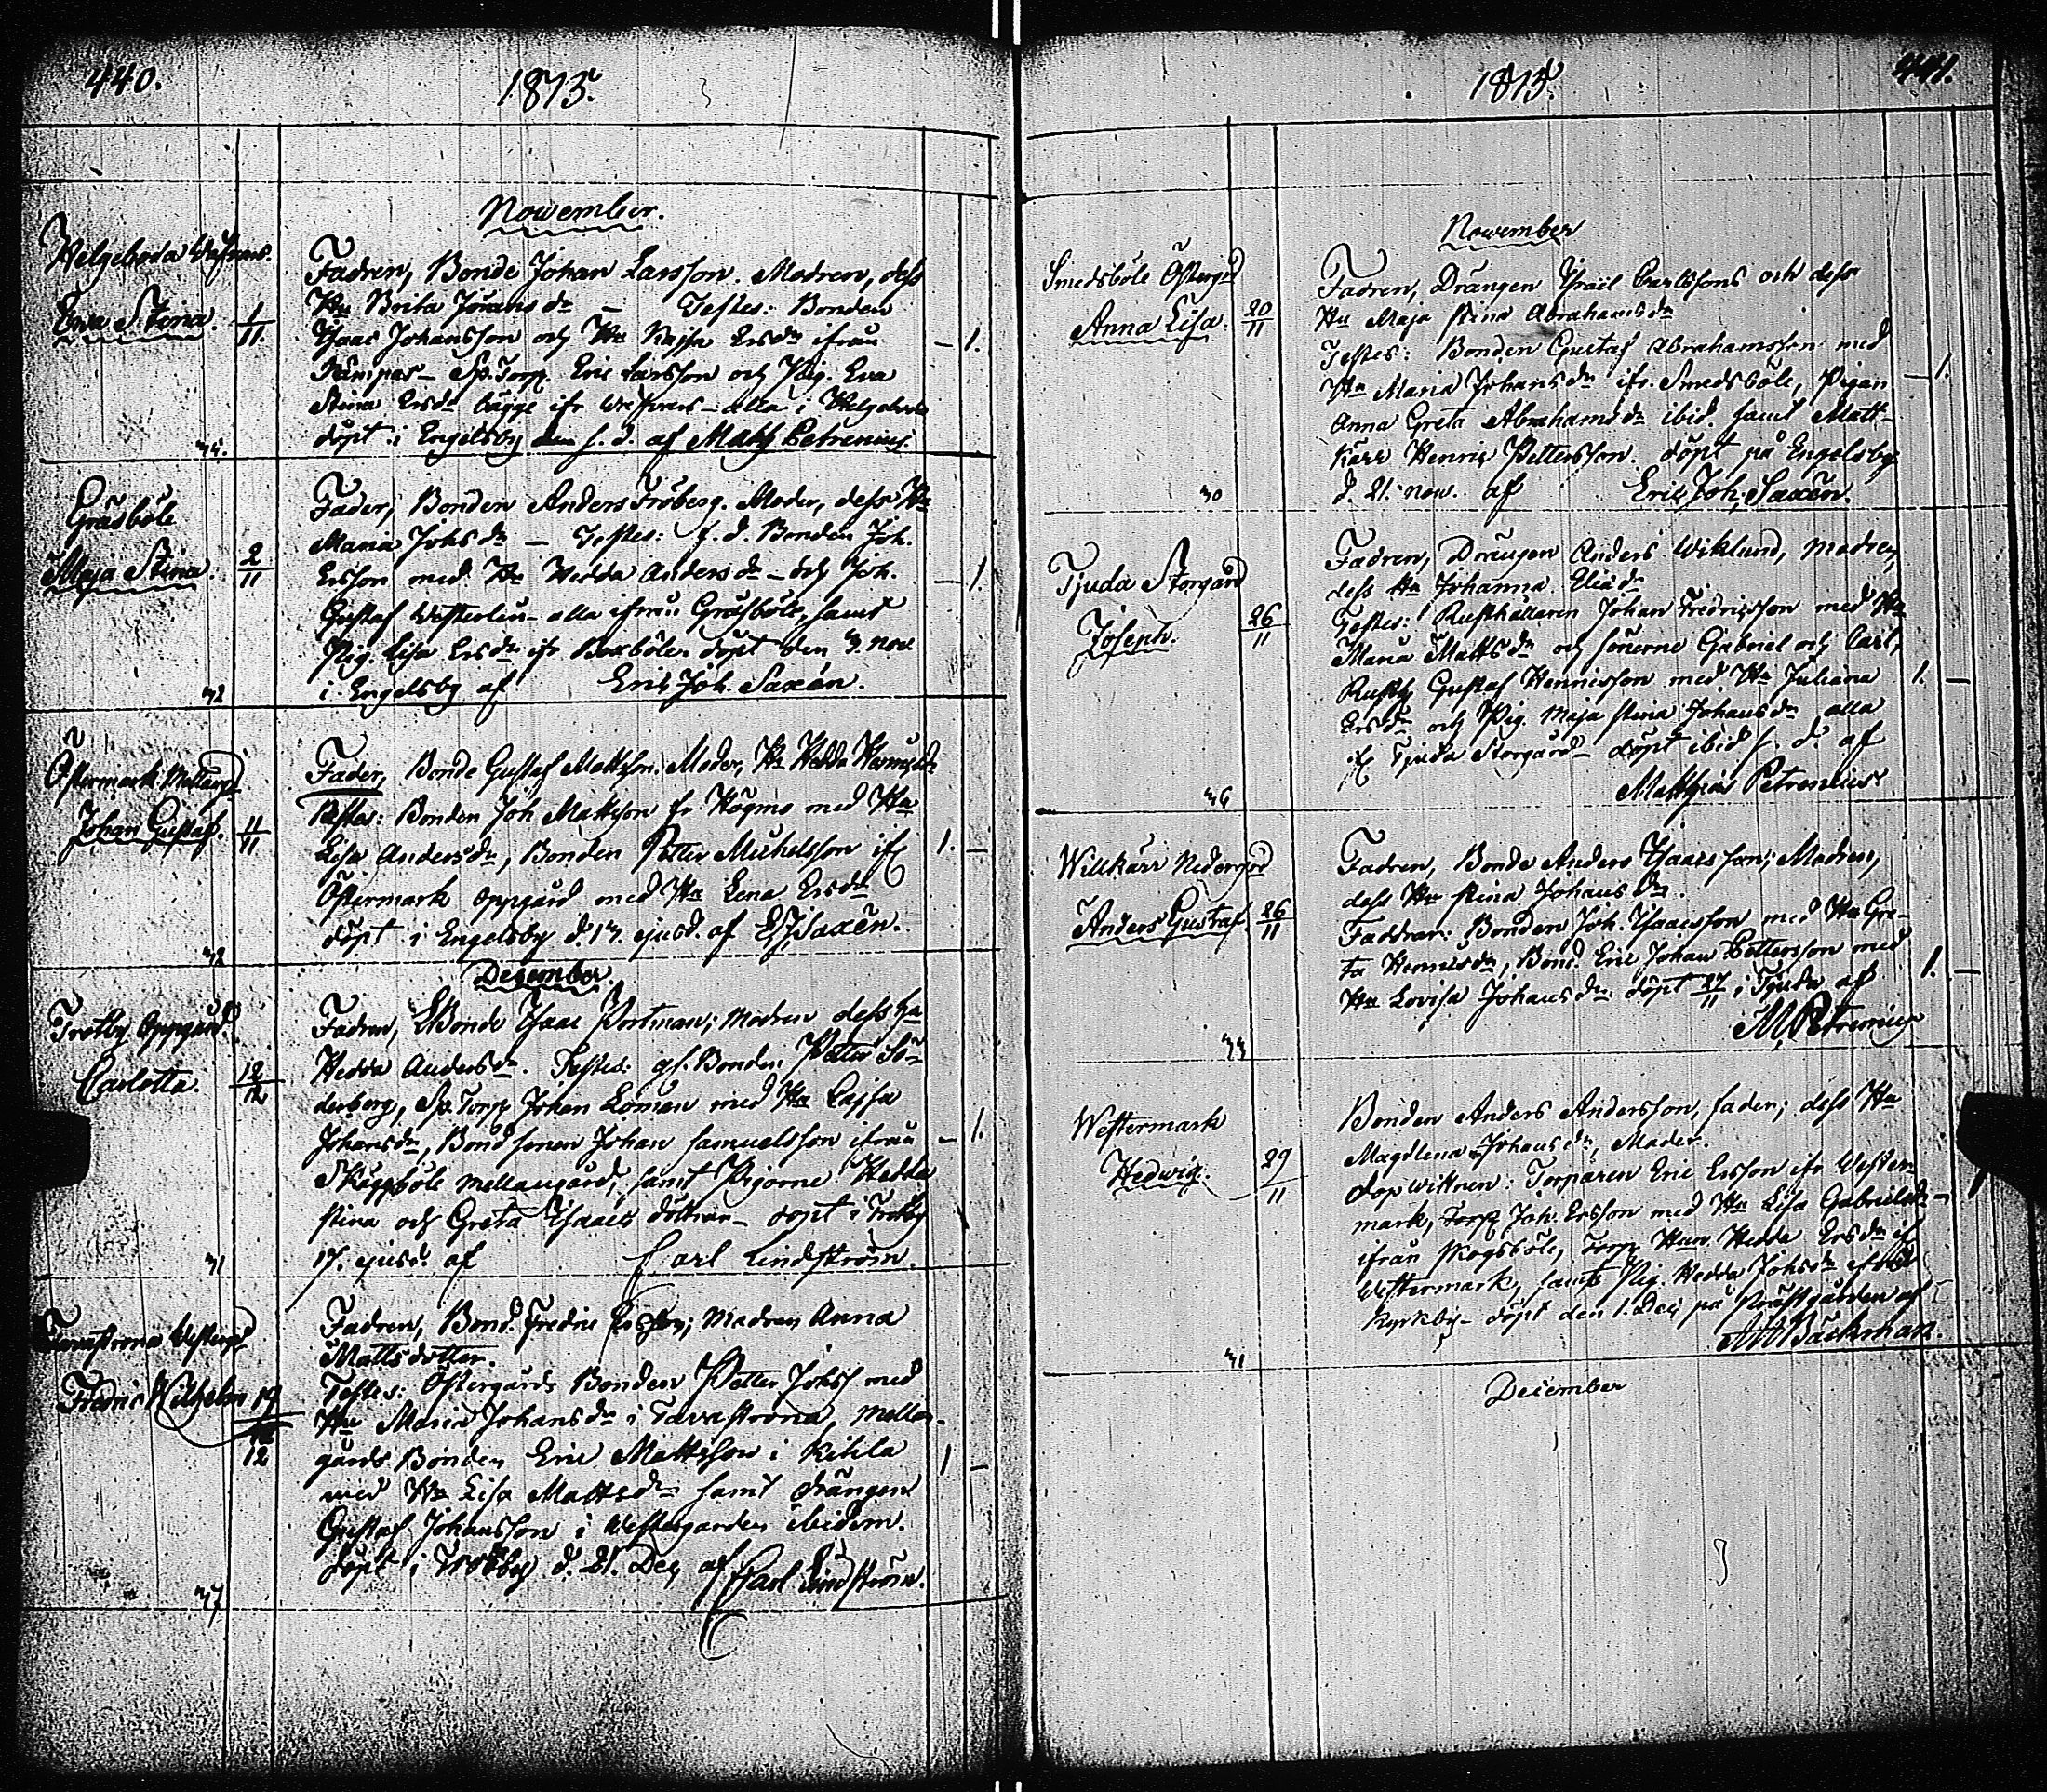 440.
1813.
November.
Helgeboda
Ewa Stina. 1/11.
Fadren, Bonde Johan Larsson. Modren, dess
Hu Brita Jörans dr — Testes: Bonden
Isaac Johansson och Hu Kajsa Ersdr ifrån
— 1.
Sp. Torp. Eric Larsson och Pig. Eva
Stina Ersdr bägge ifr — alla i Helgeboda
döpt i Engelsby s. d. af Math Petrenius.
34.
Gräsböle
Maja Stina. 2/11
Fader, Bonden Anders Fröberg. Moder, dess Hu
Maria Johsdr — Testes: f. d. Bonden Joh.
Ersson med Hu Hedda Andersdr — och Joh.
— 1.
Gustaf Westerlun — alla ifrån Gräsböle, samt
Pig. Lisa Ersdr ifr Boxböle. döpt den 3. Nov.
i Engelsby af Eric Joh. Saxén.
32
Östermark Mellangd
Johan Gustaf. 11/11
Fader, Bonde Gustaf Mattsson. Moder, Hu Hedda
Testes: Bonden Joh Mattsson fr Högmo med Hu
Lisa Andersdr, Bonden Petter Michelsson ifr
1. —
Östermark Oppgård med Hu Lena Ersdr
döpt i Engelsby d. 13. ejusd. af EJSaxén.
32
December.
Trotby Oppgård.
Carlotta. 12/12
Fadren, Bonde Isaac Portman; modren dess Hu
Hedda Andersdr. Testes: gl. Bonden Petter Sö-
derberg, Sp. Torp Johan Loman med Hu Cajsa
Johansdr, Bondsonen Johan Samuelsson ifrån
— 1.
Skäggböle Mellangård, samt Pigorne Hedda
Stina och Greta Isaacs döttrar — döpt i Trotby
17. ejusd. af Carl Lindström.
31
Tavastrona Westergd
Fredric Wilhelm 19/12
Fadren, Bond. Fredric Ersson; Madren Anna
Mattsdotter.
Testes: Östergårds Bonden Petter Johss med
Hu Maria Johansdr i Tavastrona, Mellan-
gårds Bonden Eric Mattsson i Kihla
1 —
med Hu Lisa Mattsdr samt drängen
Gustaf Johansson i Westergården ibidem.
döpt i Trotby d. 21. Dec. af Carl Lindström.
37
1813.
441.
November
Smedsböle Östergd
Anna Lisa. 20/11
Fadren, Drängen Israel Carlssons och dess
Hu Maja Stina Abrahamsdr
Testes: Bonden Gustaf Abrahamsson med
Hu Maria Johansdr ifr. Smedsböle, Pigan
— 1.
Anna Greta Abrahamsdr ibid. samt Matt-
kärr Henric Pettersson. döpt på Engelsby
d. 21. nov. af Eric Joh. Saxén.
30
Tjuda Storgård
Joseph. 26/11
Fadren, Drängen Anders Wiklund, Madren,
dess Hu Johanna Eliædr
Testes: Rusthållaren Johan Fredricsson med Hu
Maria Mattsdr och sönerne Gabriel och Carl,
Rusth Gustaf Henricsson med Hu Juliana
1. —
Ersdr och Pig. Maja Stina Johansdr alla
ifr Tjuda Storgård — döpt ibid s. d. af
Matthias Petrenius.
36
Willkärr Nedergård
Anders Gustaf. 26/11
Fadren, Bonde Anders Isaacsson; Madren,
dess Hu Stina Johansdr.
Faddrar: Bonden Joh. Isaacsson med Hu Gre-
ta Henricsdr, Bond. Eric Johan Pettersson med
1. —
Hu Lovisa Johansdr. döpt 27/11 i Tjuda af
M. Petrenius
33
Westermark
Hedwig. 29/11
Bonden Anders Andersson, fader; dess Hu
Magdlena Johansdr, Moder.
Dopwittnen: Torparen Eric Ersson ifr Wester-
mark, Torp. Joh. Ersson med Hu Lisa Gabrielsdr
— 1
ifrån Skogsböle, Torp. Hedda Ersdr ifr
Westermark, samt Pig. Hedda Johsdr ifrån
Kyrkby — döpt den 1. Dec. på Prästgården af
Backman.
31
December